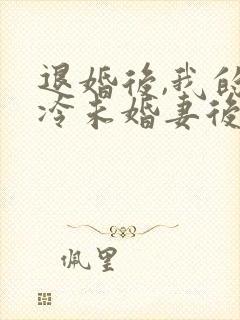 退婚後,我的
冷未婚妻後
佩里